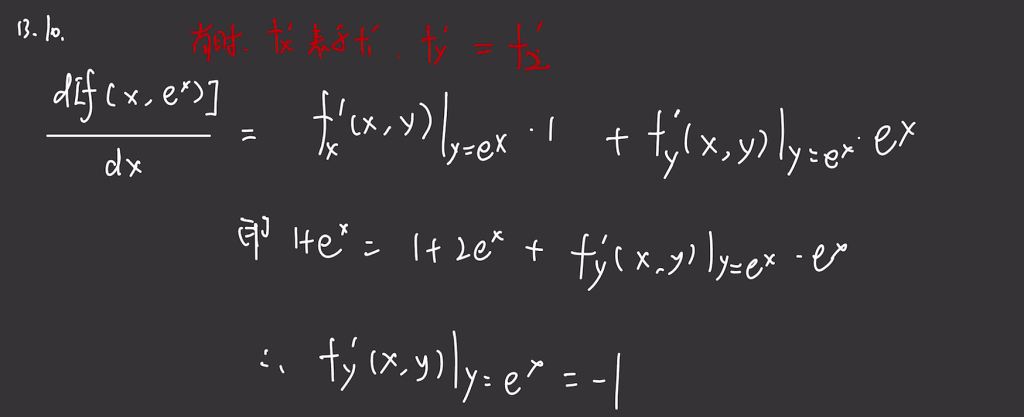 13.10.
有时. f'x 表示 f'1. f'y = f'2.
d[f(x, e^x)]/dx = f'x(x,y)|y=e^x · 1 + f'y(x,y)|y=e^x · e^x
即 1+e^x = 1+2e^x + f'y(x,y)|y=e^x · e^x
∴ f'y(x,y)|y=e^x = -1